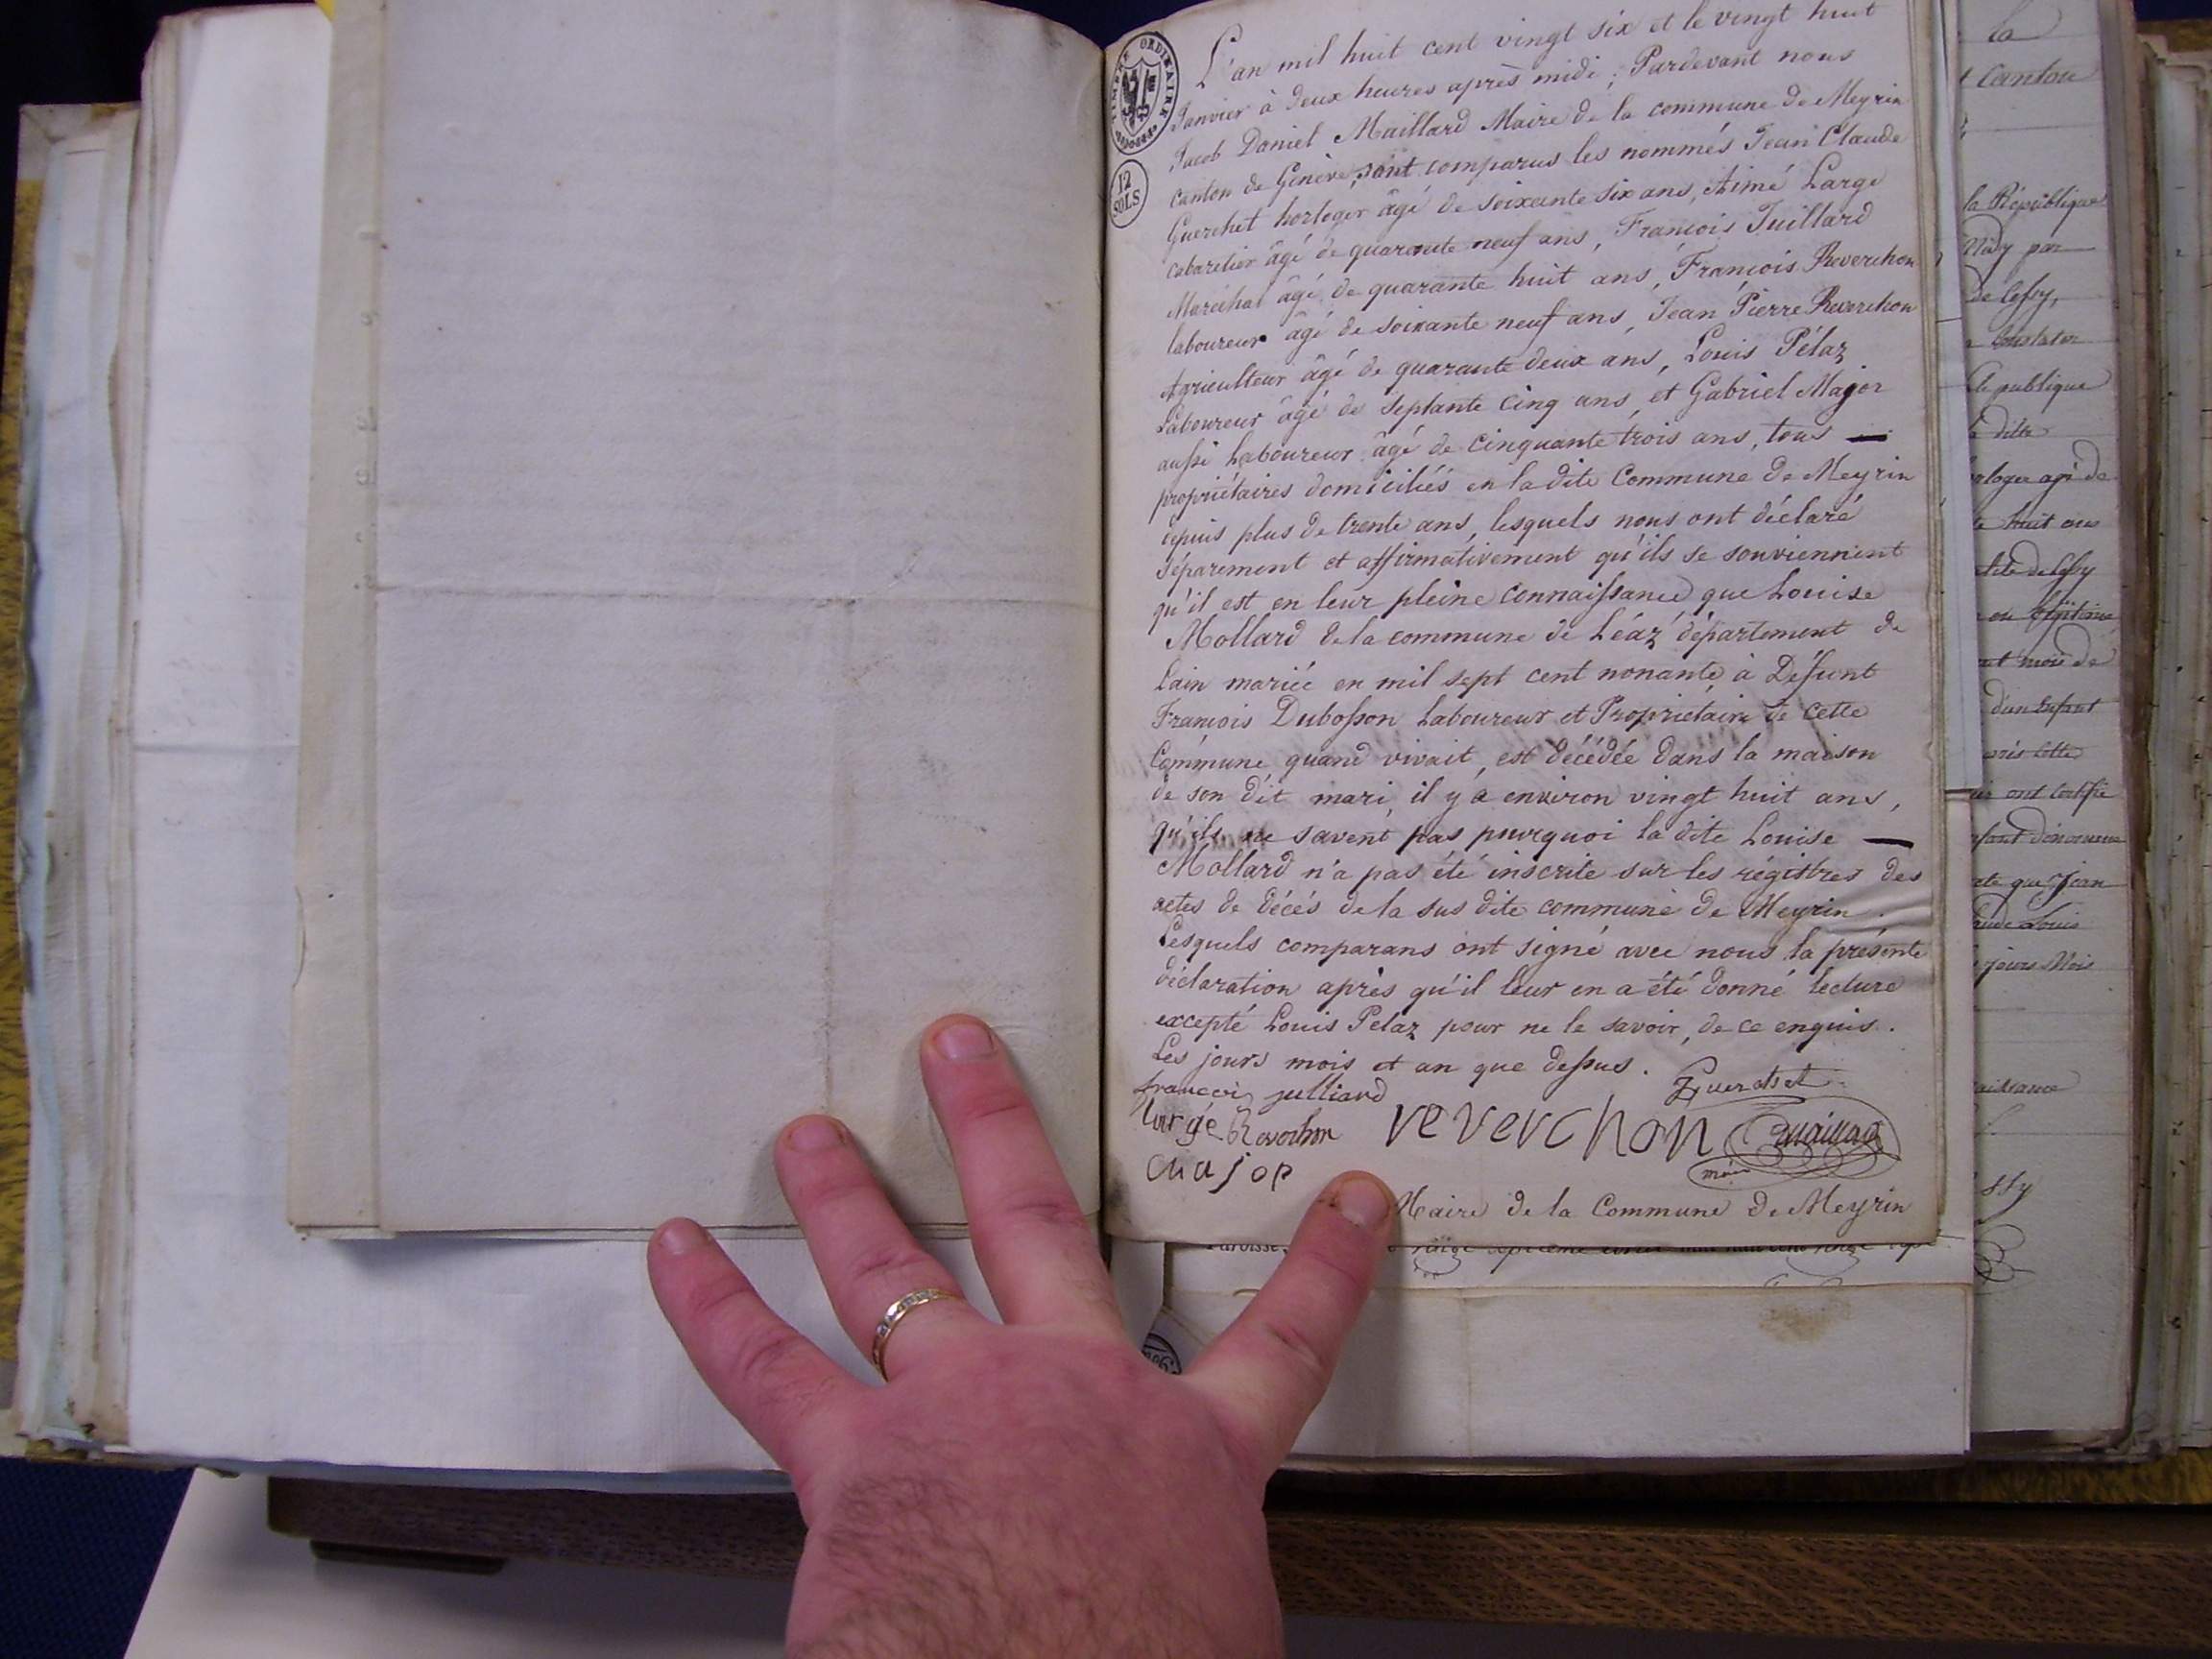 TIMBRE ORDINAIRE
12
SOLS
L'an mil huit cent vingt six et le vingt huit
Janvier à deux heures après midi ; Pardevant nous
Jacob Daniel Maillard Maire de la commune de Meyrin
canton de Genève, sont comparus les nommés Jean Claude
Guerchet horloger âgé de soixante six ans, Aimé Large
cabaretier âgé de quarante neuf ans, François Juillard
Maréchal âgé de quarante huit ans, François Reverchon
laboureur âgé de soixante neuf ans, Jean Pierre Reverchon
Agriculteur âgé de quarante deux ans, Louis Pélaz
Laboureur âgé de septante cinq ans, et Gabriel Major
aussi Laboureur âgé de cinquante trois ans, tous —
propriétaires domiciliés en la dite Commune de Meyrin
depuis plus de trente ans, lesquels nous ont déclaré
séparement et affirmativement qu'ils se souviennent
qu'il est en leur pleine connaissance que Louise
Mollard de la commune de Léaz département de
Lain mariée en mil sept cent nonante, à Défunt
François Dubosson Laboureur et Propriétaire de cette
Commune quand vivait, est décédée dans la maison
de son dit mari, il y a environ vingt huit ans,
qu'ils ne savent pas purquoi la dite Louise —
Mollard n'a pas été inscrite sur les régistres des
actes de décés de la sus dite commune de Meyrin.
Lesquels comparans ont signé avec nous la présente
déclaration après qu'il leur en a été donné lecture
excepté Louis Pelaz pour ne le savoir, de ce enquis.
Les jours mois et an que dessus.
francois julliard Guerchet
Large Revochon reverchon Maillard
major maire
Maire de la Commune de Meyrin
la
canton
la République
par
de Lessy,
publique
dite
agé de
huit ans
mois de
d'un Enfant
ont certifié
que Jean
Louis
jours Mois